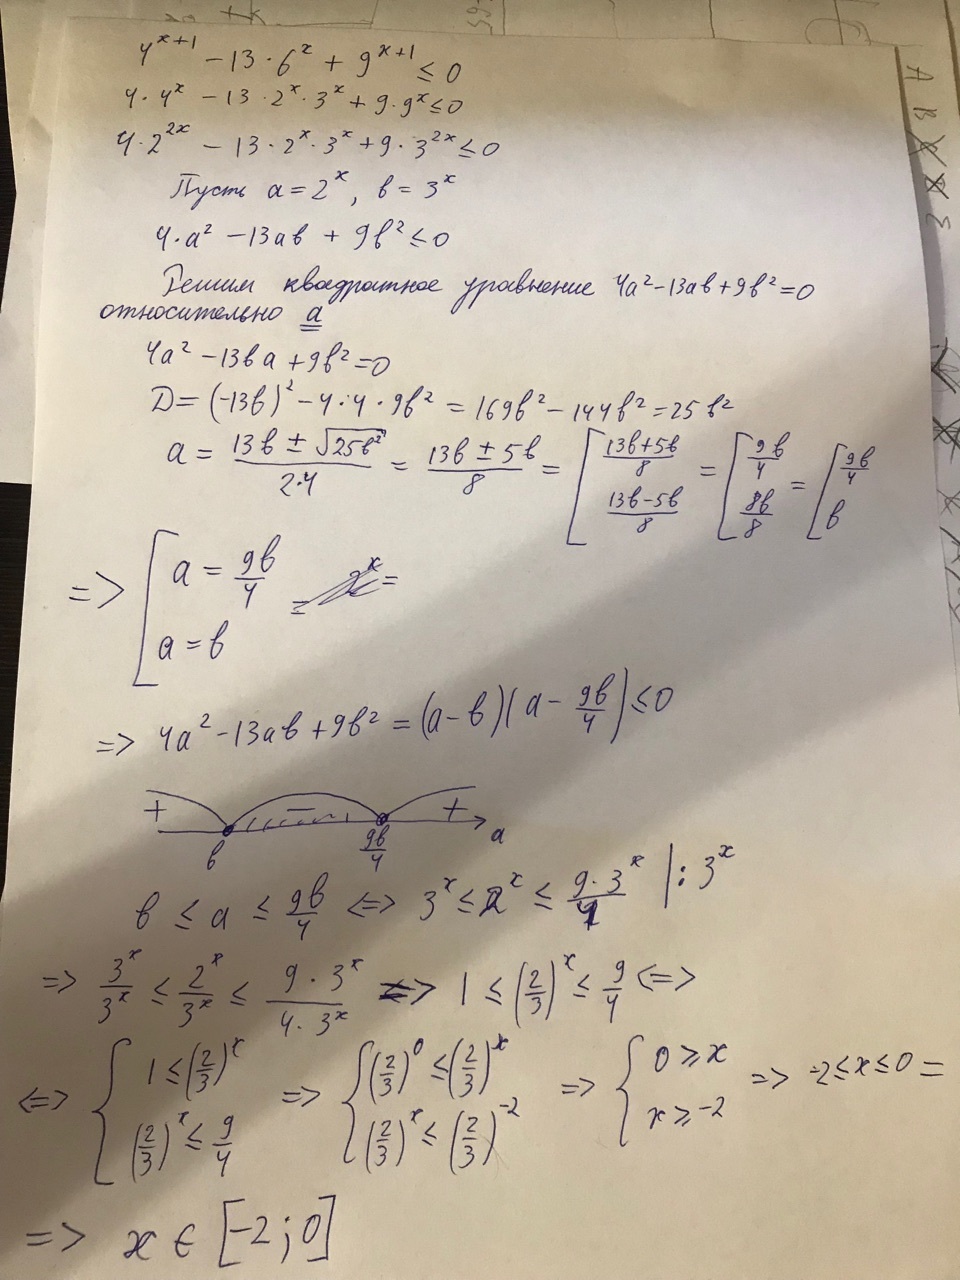 4^{x+1} - 13 · 6^x + 9^{x+1} ≤ 0
4 · 4^x - 13 · 2^x · 3^x + 9 · 9^x ≤ 0
4 · 2^{2x} - 13 · 2^x · 3^x + 9 · 3^{2x} ≤ 0
Пусть a = 2^x, b = 3^x
4 · a² - 13ab + 9b² ≤ 0
Решим квадратное уравнение 4a² - 13ab + 9b² = 0
относительно a
4a² - 13ba + 9b² = 0
D = (-13b)² - 4 · 4 · 9b² = 169b² - 144b² = 25b²
a = (13b ± √(25b²))/(2·4) = (13b ± 5b)/8 = [ (13b+5b)/8 ; (13b-5b)/8 = [ 9b/4 ; 8b/8 = [ 9b/4 ; b
=> [ a = 9b/4
a = b
=> 4a² - 13ab + 9b² = (a - b)(a - 9b/4) ≤ 0
+ - +
b 9b/4 a
b ≤ a ≤ 9b/4 <=> 3^x ≤ 2^x ≤ (9 · 3^x)/4 |: 3^x
=> 3^x/3^x ≤ 2^x/3^x ≤ (9 · 3^x)/(4 · 3^x) => 1 ≤ (2/3)^x ≤ 9/4 <=>
<=> { 1 ≤ (2/3)^x ; (2/3)^x ≤ 9/4 => { (2/3)^0 ≤ (2/3)^x ; (2/3)^x ≤ (2/3)^{-2} => { 0 ≥ x ; x ≥ -2 => -2 ≤ x ≤ 0 =
=> x ∈ [-2; 0]